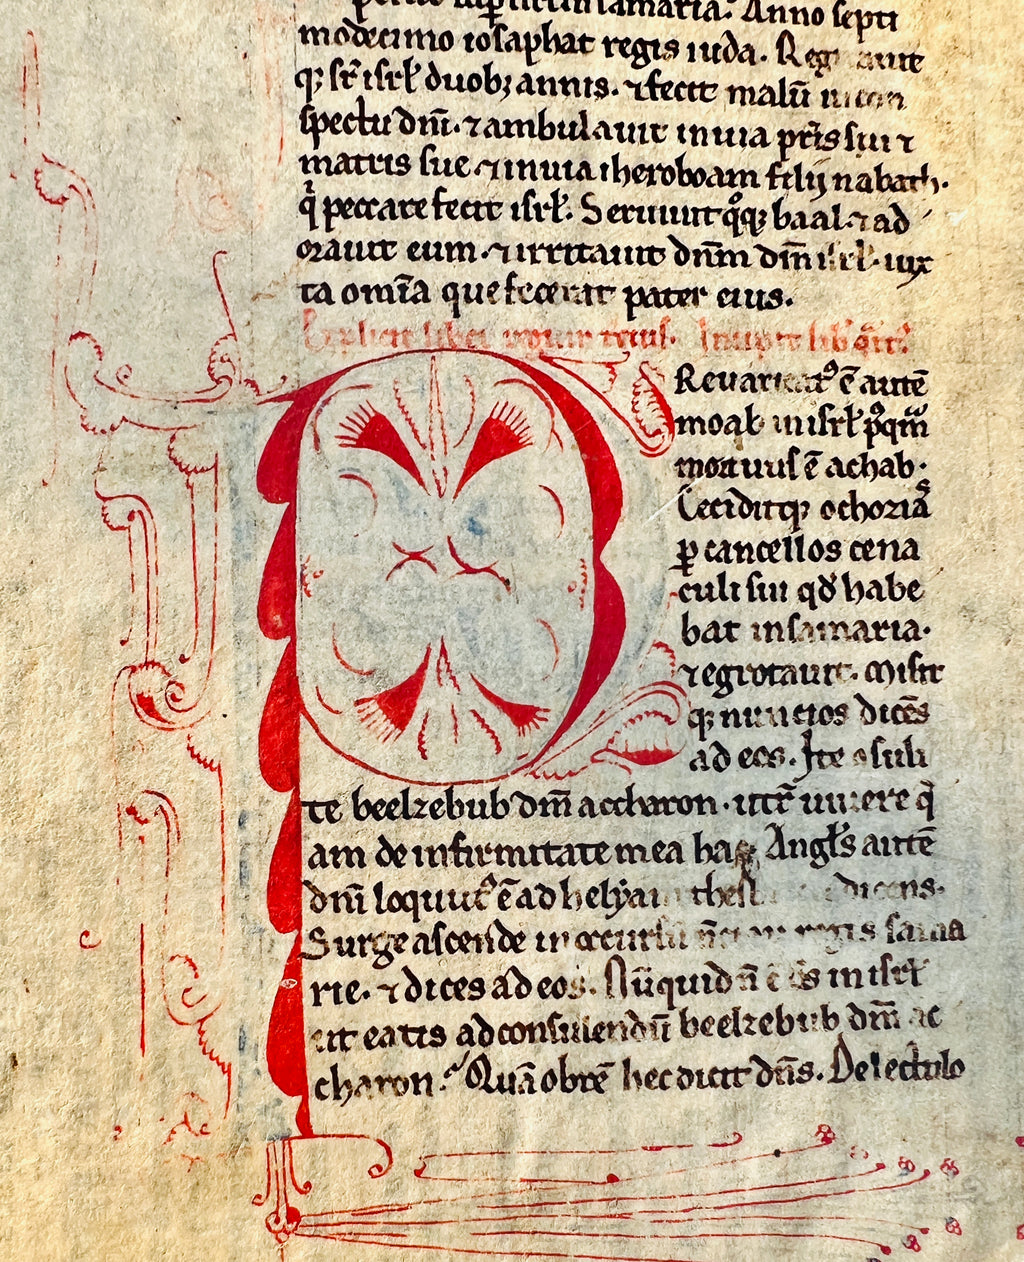 samaria. Anno septi
modecimo iosaphat regis iuda. Reg aute
q; sr̄ isrł duob; annis. ⁊ fecit malū in con
spectu dnī. ⁊ ambulauit in uia pr̄is sui ⁊
matris sue ⁊ in uia iheroboam filij nabath.
q̄ peccare fecit isrł. Seruiuit qͦq; baal. ⁊ ad
orauit eum. ⁊ irritauit dn̄m dm̄ isrł. iux
ta om̄ia que fecerat pater eius.
Explicit liber regum tcius. Incipit lib̄ q̄rt᷒.
PReuaricatꝰ ē autē
moab in isrł pꝰqm̄
mortuus ē achab.
Ceciditq; ochoziaˢ
ꝑ cancellos cena
culi sui qđ habe
bat in samaria.
⁊ egrotauit. Misit
q; nuncios dicēs
ad eos. Ite ⁊ suli
te beelzebub dm̄ accharon. utr̄ uiuere q̄
am de infirmitate mea hac Angłs autē
dnī loquutꝰ ē ad helyam thesb dicens.
Surge ascende in occursū regis sama
rie. ⁊ dices ad eos. Nūquid n̄ ē d̄s in isrł
ut eatis ad consulendū beelzebub dm̄ ac
charon. Quā obrē hec dicit dn̄s. De lectulo